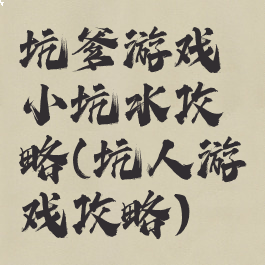 坑爹游戏
小坑水攻
略(坑人游
戏攻略)